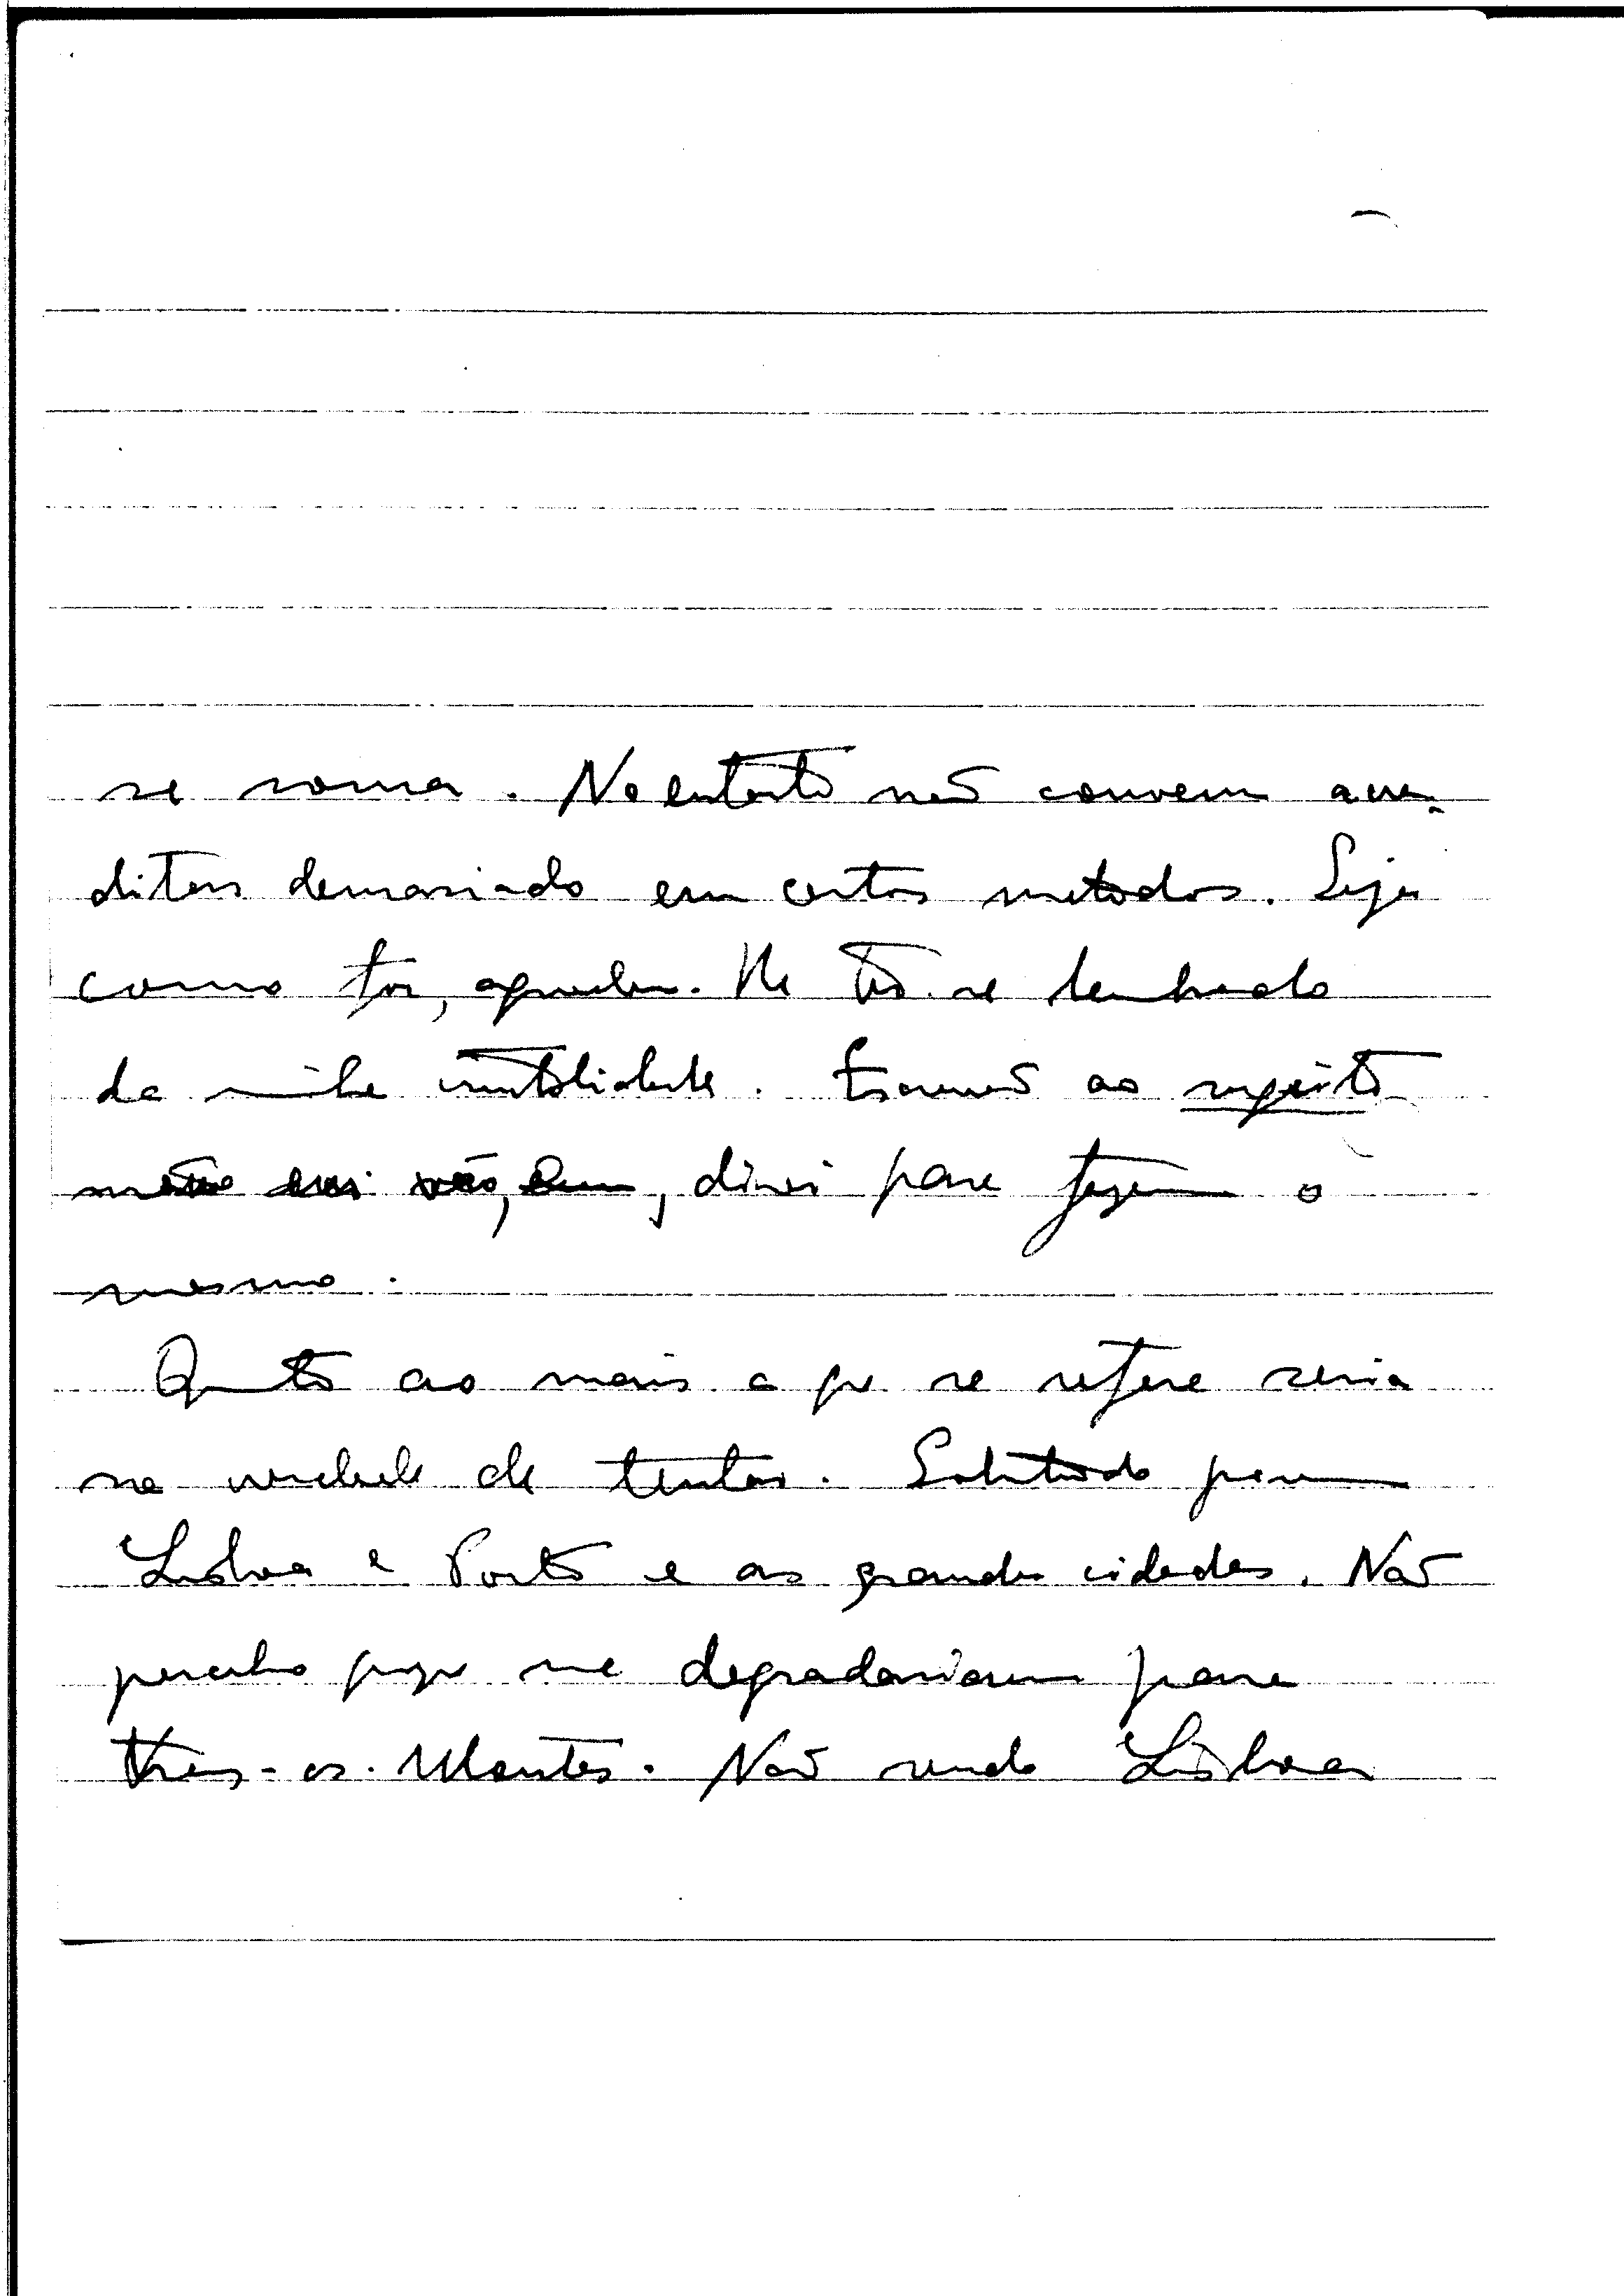 se soma. No entanto não convem acre-
ditar demasiado em certos metodos. Seja
como for, agradeço-lhe tê-se lembrado
da minha. Escrevo ao
, direi para fazerem o
mesmo.
Quanto ao mais a que se refere seria
na verdade de tentar. Sobretudo para
Lisboa e Porto e as grandes cidades. Não
percebo porque me degradariam para
Tras-os-Montes. Não sendo Lisboa